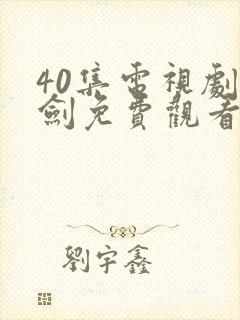 40集電視劇
劍免費觀看
劉宇鑫